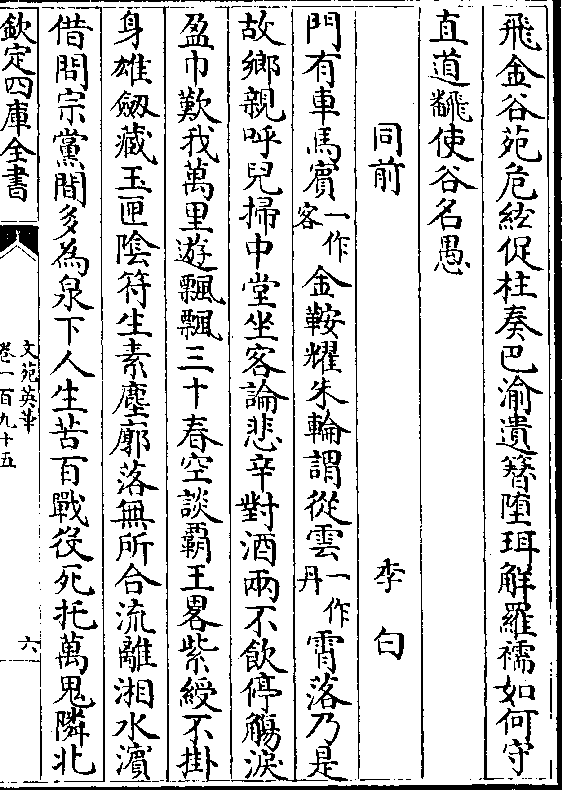 飛金谷苑危絃促柱奏巴渝遺簪堕珥解羅襦如何守
直道翻飛使谷名愚
同前 李白
門有車馬賓一作客金鞍耀朱輪謂從雲一作丹霄落乃是
故鄉親呼兒掃中堂坐客論悲辛對酒兩不飲停觴淚
盈巾歎我萬里遊飄飄三十春空談覇王畧紫綬不掛
身雄劒藏玉匣陰符生素塵廓落無所合流離湘水濱
借問宗黨間多為泉下人生苦百戰役死托萬鬼隣北
欽定四庫全書
文苑英華
卷一百九十五
六